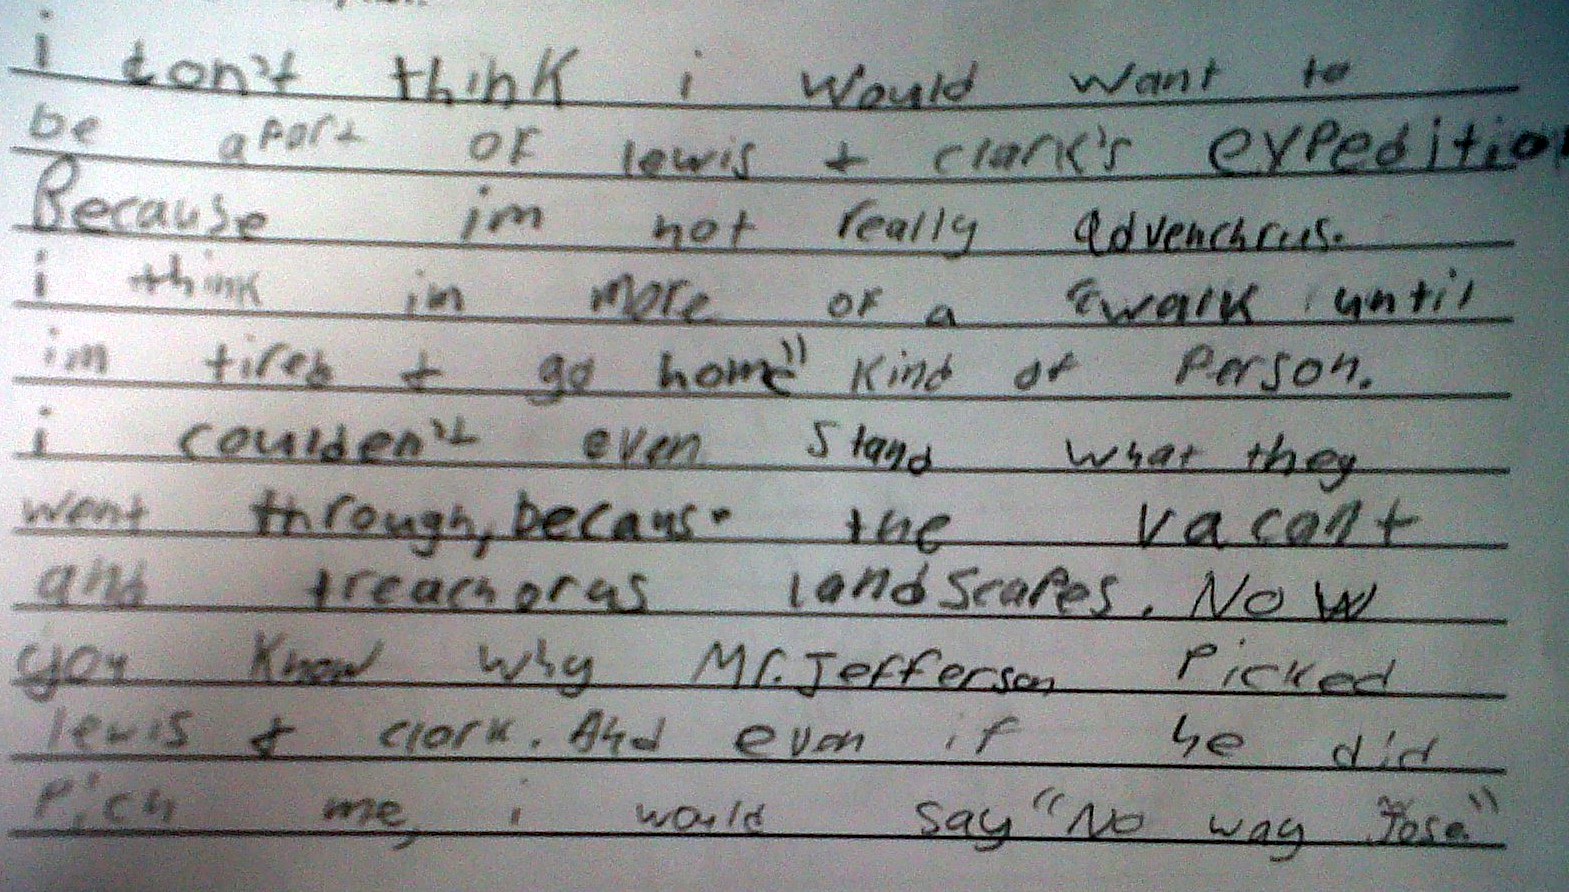 i don't think i would want to
be apart of lewis + clark's expedition
Because im not really advenchrus.
i think im more of a "walk until
im tired + go home" kind of person.
i coulden't even stand what they
went through, because the vacant
and treachoras landscapes. Now
you know why Mr. Jefferson picked
lewis + clark. And even if he did
pick me, i would say "No way Jose"